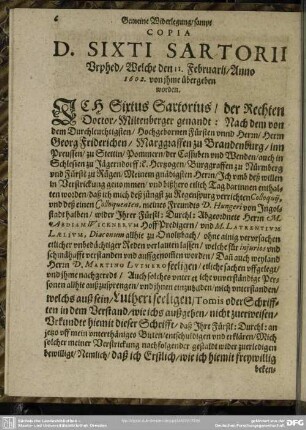 6 Gemeine Widerlegung/sampt
COPIA
D. SIXTI SARTORII
Vrphed/ Welche den 11. Februarii/ Anno
1602. von jhme übergeben
worden.
ICH Sixtus Sartorius/ der Rechten
Doctor, Miltenberger genandt: Nach dem von
dem Durchleuchtigsten/ Hochgebornen Fürsten vnnd Herrn/ Herrn
Georg Friderichen/ Marggraffen zu Brandenburg/ inn
Preussen/ zu Stettin/ Pommern/ der Cassuben vnd Wenden/ auch in
Schlesien zu Jägerndorff ꝛc. Hertzogen/ Burggraffen zu Nürmberg
vnd Fürst zu Rügen/ Meinem gnädigsten Herrn/ Ich vnd deß willen
in Verstrickung genommen/ vnd bißhero etlich Tag darinnen enthal-
ten worden/ daß ich mich deß jüngst zu Regenspurg verrichten Colloquij,
vnd deß einen Colloquenten, meines Freundes D. Hungeri von Ingol-
stadt halben/ wider Ihrer Fürstl: Durchl: Abgeordnete Herrn M.
Hoff Predigern/ vnd M. LAVRENTIVM
LÆLIVM, Diaconum allhie zu Onoltzbach/ ohne einig vervrsachen
etlicher vnbedächtiger Reden verlauten lassen/ welche für injurias vnd
schmähhafft verstanden vnd auffgenommen worden/ Daß auch weyland
Herrn D. MARTINO LVTHERO seeligen/ etliche sachen auffgelegt/
vnd jhme nachgeredt/ Auch solches vnter
allhie außzusprengen/ vnd jhnen einzubilden/ mich vnterstanden/
welchs auß sein/ Lutheri seeligen/ Tomis oder Schriff-
ten in dem Verstand/ wie ichs außgeben/ nicht zuerweisen/
Vrkundte hiemit dieser Schrifft/ daß Ihr Fürstl: Durchl: an
jetzo
solcher meiner Verstrickung nachfolgender gestallt wider zuerledigen
bewillige/ Nemlich/ daß ich Erstlich/ wie ich hiemit freywillig
beken-